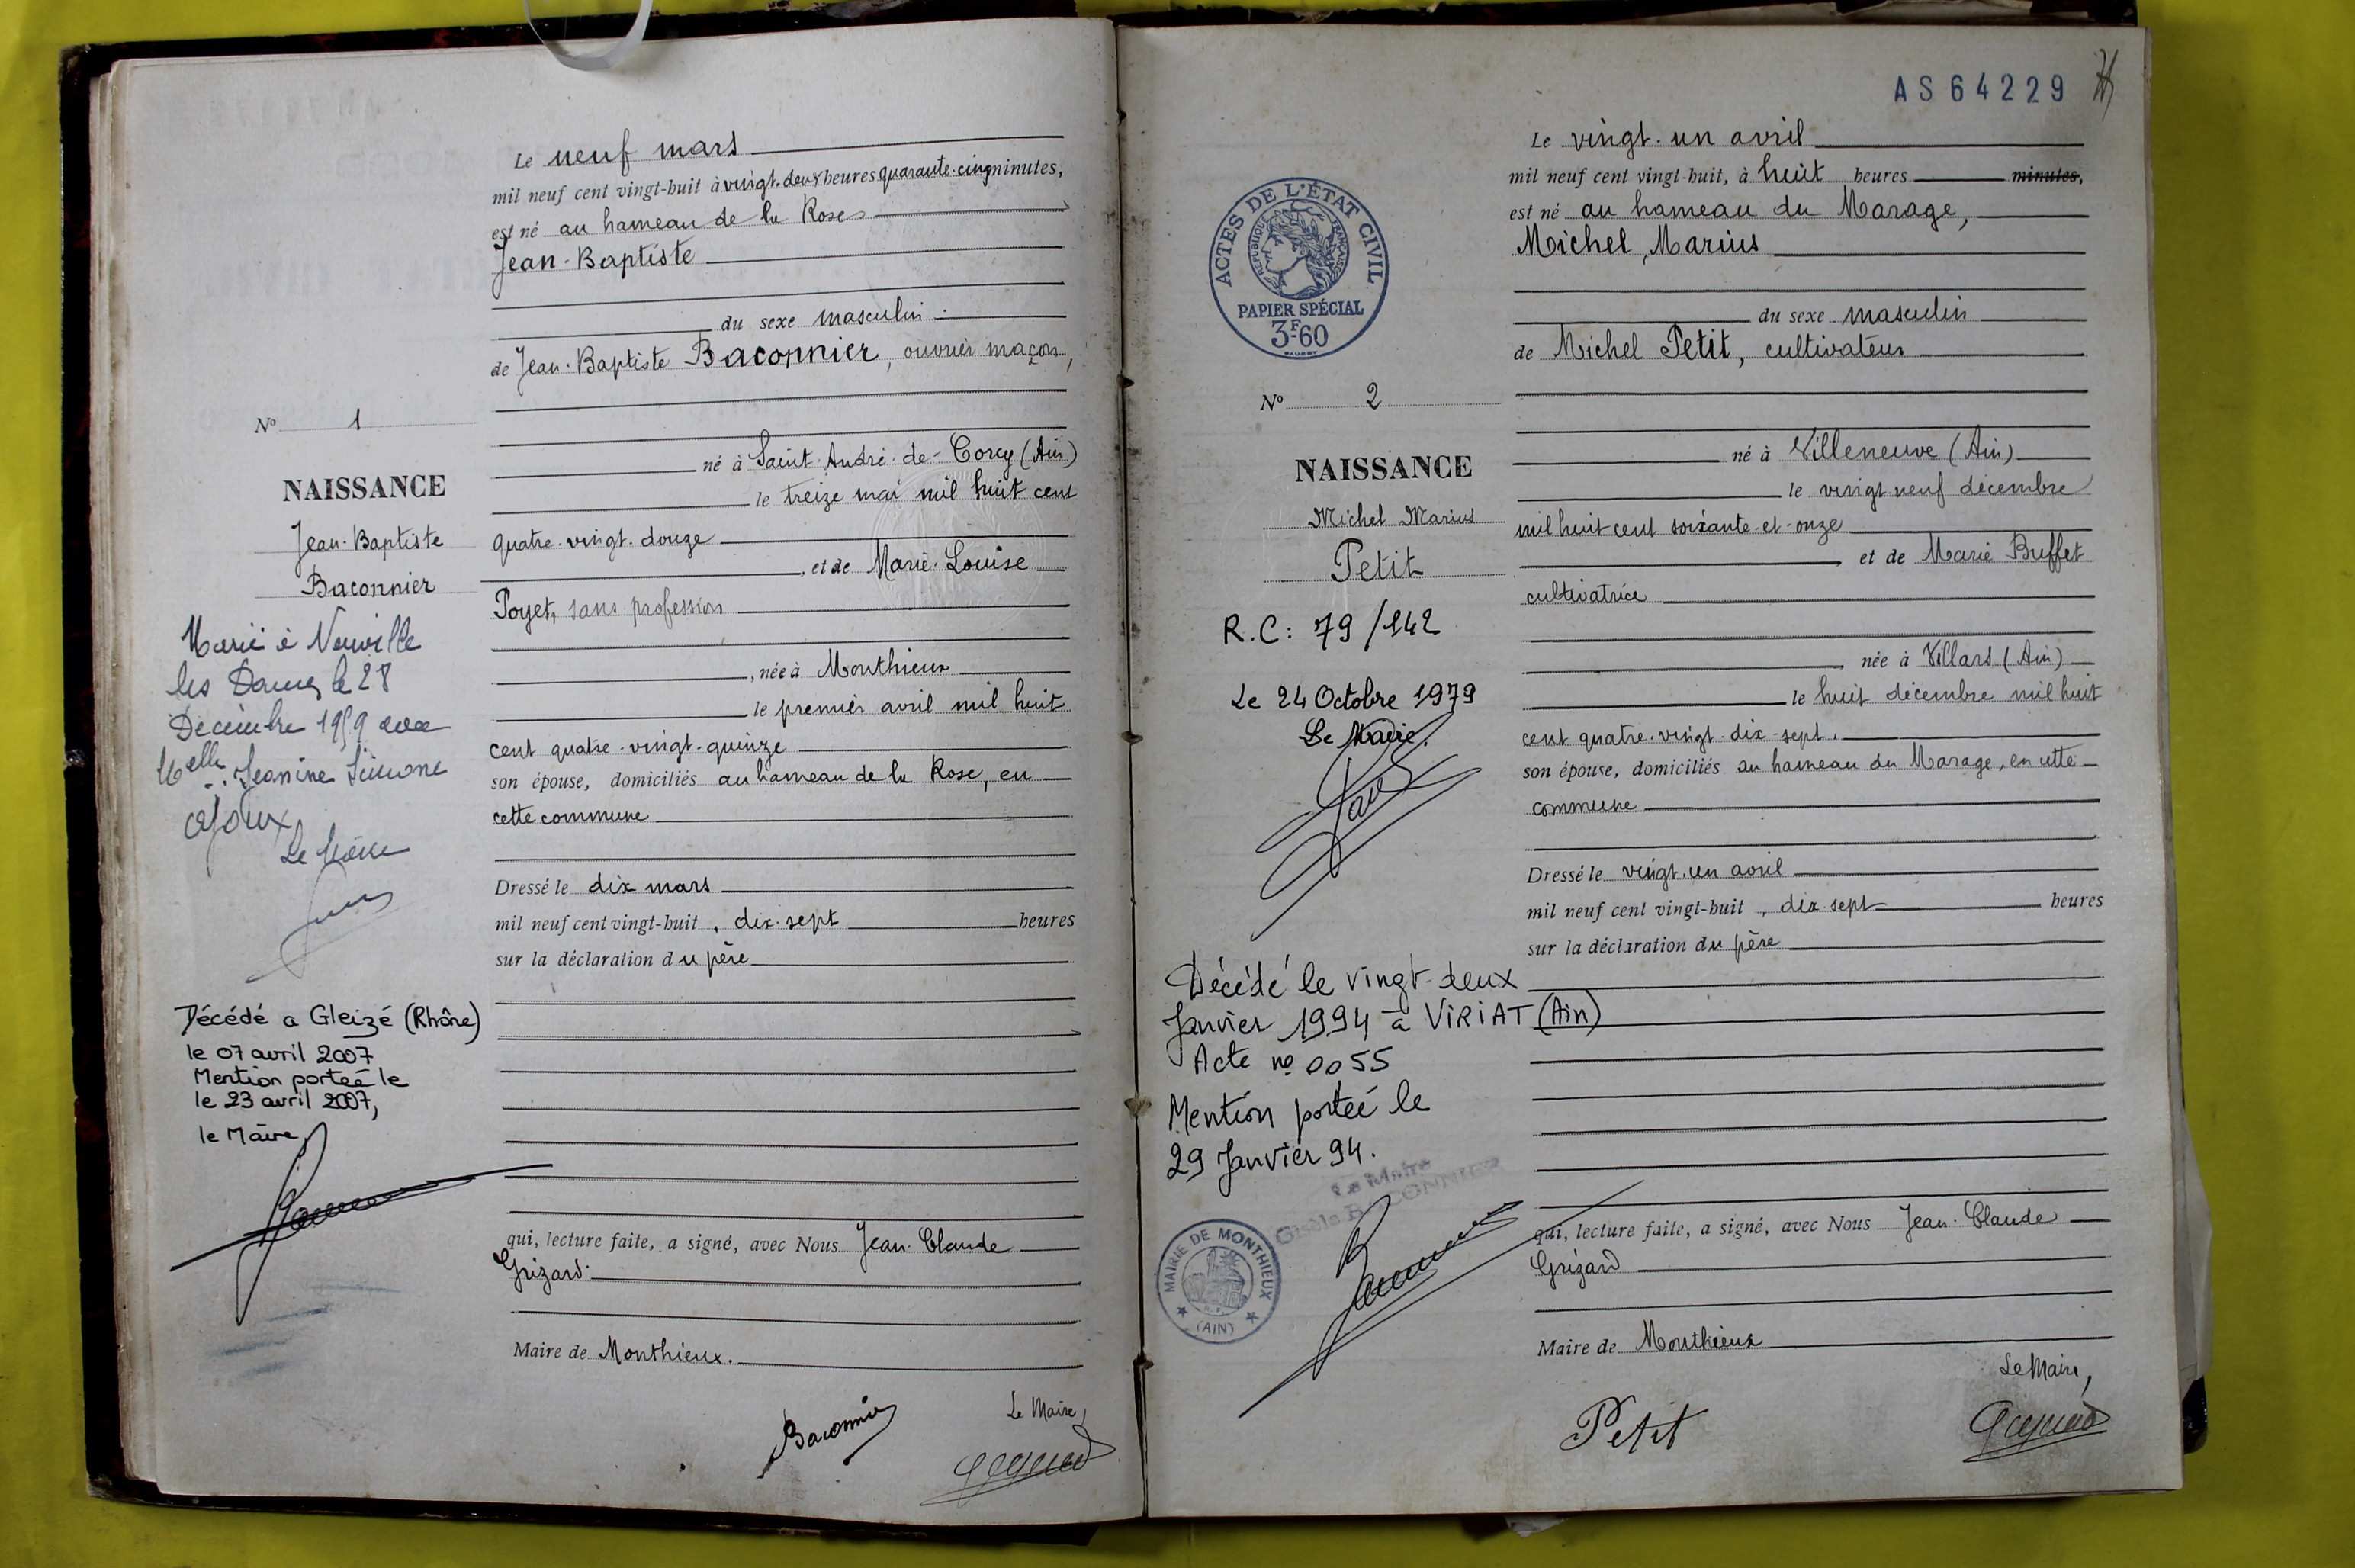 Le neuf mars
mil neuf cent vingt-huit à vingt-deux heures quarante-cinq minutes,
est né au hameau de la Rose
Jean-Baptiste
du sexe masculin
de Jean-Baptiste Baconnier, ouvrier maçon,
né à Saint-André-de-Corcy (Ain)
le treize mai mil huit cent
quatre-vingt-douze
, et de Marie-Louise
Poyet, sans profession
, née à Monthieux
le premier avril mil huit
cent quatre-vingt-quinze
son épouse, domiciliés au hameau de la Rose, en
cette commune
Dressé le dix mars
mil neuf cent vingt-huit, dix-sept heures
sur la déclaration du père
qui, lecture faite, a signé, avec Nous Jean-Claude
Grizard
Maire de Monthieux.
Baconnier
Le Maire,
No 1
NAISSANCE
Jean-Baptiste
Baconnier
Marié à Neuville
les Dames le 28
Décembre 1959 avec
Melle Jeanine Simone
Le Maire
Décédé a Gleizé (Rhône)
le 07 avril 2007
Mention porteé le
le 23 avril 2007,
le Maire,
AS64229
Le vingt-un avril
mil neuf cent vingt-huit, à huit heures minutes,
est né au hameau du Marage,
Michel, Marius
du sexe masculin
de Michel Petit, cultivateur
né à Villeneuve (Ain)
le vingt-neuf décembre
mil huit cent soixante-et-onze
et de Marie Buffet
cultivatrice
, née à Villars (Ain)
le huit décembre mil huit
cent quatre-vingt-dix-sept.
son épouse, domiciliés au hameau du Marage, en cette
commune
Dressé le vingt-un avril
mil neuf cent vingt-huit, dix-sept heures
sur la déclaration du père
qui, lecture faite, a signé, avec Nous Jean-Claude
Grizard
Maire de Monthieux
Le Maire,
Petit
ACTES DE L'ÉTAT CIVIL
RÉPUBLIQUE FRANÇAISE
PAPIER SPÉCIAL
3F60
No 2
NAISSANCE
Michel Marius
Petit
R.C: 79/142
Le 24 Octobre 1979
Le Maire.
Décédé le vingt-deux
Janvier 1994 à VIRIAT (Ain)
Acte no 0055
Mention porteé le
29 Janvier 94.
Le Maire
MAIRIE DE MONTHIEUX
(AIN)